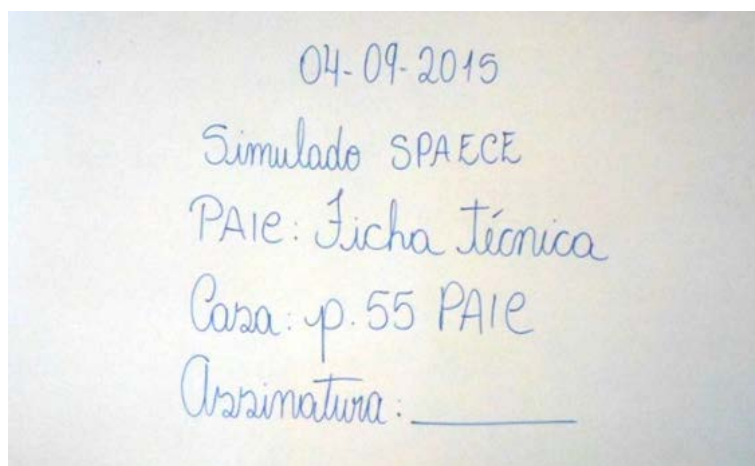 04-09-2015
Simulado SPAECE
PAIC: Ficha técnica
Casa: p. 55 PAIC
Assinatura: ________